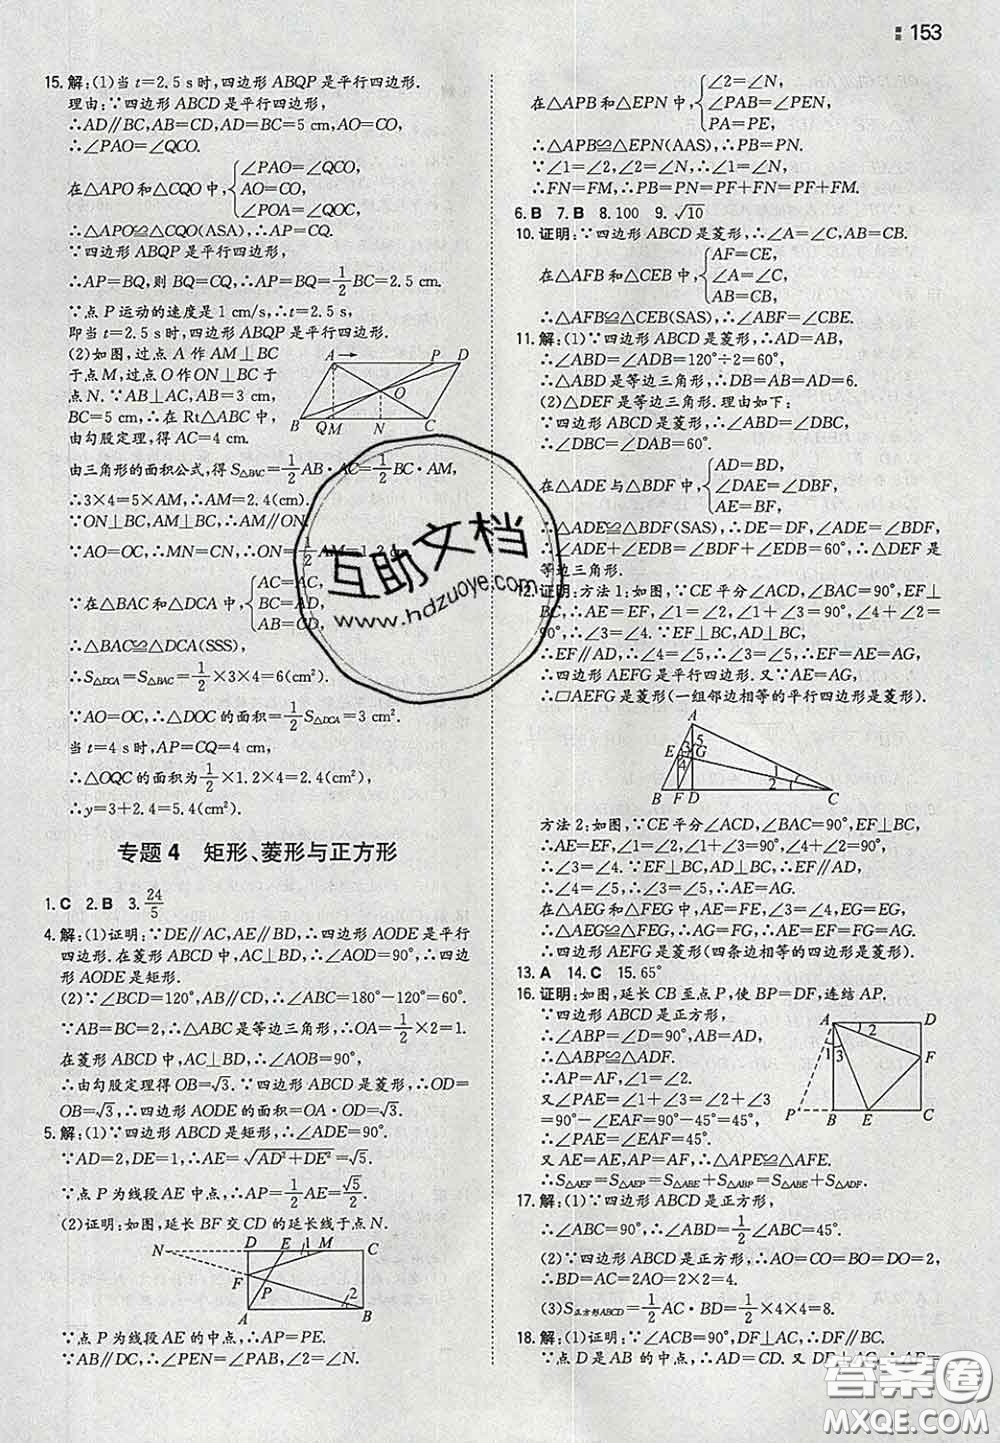 153
15.解:(1)当 t=2.5 s时,四边形 ABQP 是平行四边形.
理由:∵四边形 ABCD 是平行四边形,
∴AD∥BC,AB=CD,AD=BC=5 cm,AO=CO,
∴∠PAO=∠QCO.
在△APO 和△CQO 中,{∠PAO=∠QCO,
AO=CO,
∠POA=∠QOC,
∴△APO≌△CQO(ASA),∴AP=CQ.
∵四边形 ABQP 是平行四边形,
∴AP=BQ,则 BQ=CQ,∴AP=BQ=1/2 BC=2.5 cm.
∵点 P 运动的速度是 1 cm/s,∴t=2.5 s,
即当 t=2.5 s时,四边形 ABQP 是平行四边形.
(2)如图,过点 A 作 AM⊥BC
于点 M,过点 O 作 ON⊥BC 于
点 N.∵AB⊥AC,AB=3 cm,
BC=5 cm,∴在 Rt△ABC 中,
由勾股定理,得 AC=4 cm.
A P D O B Q M N C
由三角形的面积公式,得 S△BAC=1/2 AB·AC=1/2 BC·AM,
∴3×4=5×AM,∴AM=2.4(cm).
∵ON⊥BC,AM⊥BC,∴AM∥ON,
∵AO=OC,∴MN=CN,∴ON=1/2 AM=1.2
∵在△BAC 和△DCA 中,{AC=AC,
BC=AD,
AB=CD,
∴△BAC≌△DCA(SSS),
∴S△DCA=S△BAC=1/2×3×4=6(cm²).
∵AO=OC,∴△DOC 的面积=1/2 S△DCA=3 cm².
当 t=4 s时,AP=CQ=4 cm,
∴△OQC 的面积为1/2×1.2×4=2.4(cm²),
∴y=3+2.4=5.4(cm²).
专题 4 矩形、菱形与正方形
1.C 2.B 3.24/5
4.解:(1)证明:∵DE∥AC,AE∥BD,∴四边形 AODE 是平行
四边形.在菱形 ABCD 中,AC⊥BD,∴∠AOD=90°,∴四边
形 AODE 是矩形.
(2)∵∠BCD=120°,AB∥CD,∴∠ABC=180°-120°=60°.
∵AB=BC=2,∴△ABC 是等边三角形,∴OA=1/2×2=1.
在菱形 ABCD 中,AC⊥BD,∴∠AOB=90°,
∴由勾股定理得 OB=√3.∵四边形 ABCD 是菱形,∴OD=
OB=√3,∴四边形 AODE 的面积=OA·OD=√3.
5.解:(1)∵四边形 ABCD 是矩形,∴∠ADE=90°.
∵AD=2,DE=1,∴AE=√(AD²+DE²)=√5.
∵点 P 为线段 AE 中点,∴AP=1/2 AE=√5/2.
(2)证明:如图,延长 BF 交 CD 的延长线于点 N.
N D E 1 M C F P 2 A B
∵点 P 为线段 AE 的中点,∴AP=PE.
∵AB∥DC,∴∠PEN=∠PAB,∠2=∠N.
在△APB 和△EPN 中,{∠2=∠N,
∠PAB=∠PEN,
PA=PE,
∴△APB≌△EPN(AAS),∴PB=PN.
∵∠1=∠2,∠2=∠N,∴∠1=∠N,
∴FN=FM,∴PB=PN=PF+FN=PF+FM.
6.B 7.B 8.100 9.√10
10.证明:∵四边形 ABCD 是菱形,∴∠A=∠C,AB=CB.
在△AFB 和△CEB 中,{AF=CE,
∠A=∠C,
AB=CB,
∴△AFB≌△CEB(SAS),∴∠ABF=∠CBE.
11.解:(1)∵四边形 ABCD 是菱形,∴AD=AB,
∴∠ABD=∠ADB=120°÷2=60°,
∴△ABD 是等边三角形,∴DB=AB=AD=6.
(2)△DEF 是等边三角形.理由如下:
∵四边形 ABCD 是菱形,∴∠ABD=∠DBC,
∴∠DBC=∠DAB=60°.
在△ADE 与△BDF 中,{AD=BD,
∠DAE=∠DBF,
AE=BF,
∴△ADE≌△BDF(SAS),∴DE=DF,∠ADE=∠BDF,
∴∠ADE+∠EDB=∠BDF+∠EDB=60°,∴△DEF 是
等边三角形.
12.证明:方法 1:如图,∵CE 平分∠ACD,∠BAC=90°,EF⊥
BC,∴AE=EF,∠1=∠2,∠1+∠3=90°,∠2+∠4=
90°,∴∠3=∠4.∵EF⊥BC,AD⊥BC,
∴EF∥AD,∴∠4=∠5,∴∠3=∠5,∴EF=AE=AG,
∴四边形 AEFG 是平行四边形.又∵AE=AG,
∴□AEFG 是菱形(一组邻边相等的平行四边形是菱形).
A 5 E 3 G 4 1 2 B F D C
方法 2:如图,∵CE 平分∠ACD,∠BAC=90°,EF⊥BC,
∴AE=EF,∠1=∠2,∠1+∠3=90°,∠2+∠4=90°,
∴∠3=∠4.∵EF⊥BC,AD⊥BC,∴EF∥AD,
∴∠4=∠5,∴∠3=∠5,∴AE=AG.
在△AEG 和△FEG 中,AE=FE,∠3=∠4,EG=EG,
∴△AEG≌△FEG,∴AG=FG,∴AE=EF=FG=AG,
∴四边形 AEFG 是菱形(四条边相等的四边形是菱形).
13.A 14.C 15.65°
16.证明:如图,延长 CB 至点 P,使 BP=DF,连结 AP.
∵四边形 ABCD 是正方形,
∴∠ABP=∠D=90°,AB=AD,
∴△ABP≌△ADF.
∴AP=AF,∠1=∠2.
又∠PAE=∠1+∠3=∠2+∠3
=90°-∠EAF=90°-45°=45°,
∴∠PAE=∠EAF=45°.
A D 2 1 3 F P B E C
又 AE=AE,AP=AF,∴△APE≌△AFE.
∴S△AEF=S△AEP=S△ABE+S△ABP=S△ABE+S△ADF.
17.解:(1)∵四边形 ABCD 是正方形,
∴∠ABC=90°,∴∠ABD=1/2∠ABC=45°.
(2)∵四边形 ABCD 是正方形,∴AO=CO=BO=DO=2,
∴BD=AC=2AO=2×2=4.
(3)S正方形ABCD=1/2 AC·BD=1/2×4×4=8.
18.解:(1)证明:∵∠ACB=90°,DF⊥AC,∴DF∥BC.
∵点 D 是 AB 的中点,∴AD=CD.又 DF⊥AC,
互助文档
www.hdzuoye.com
答案圈
MXQE.COM